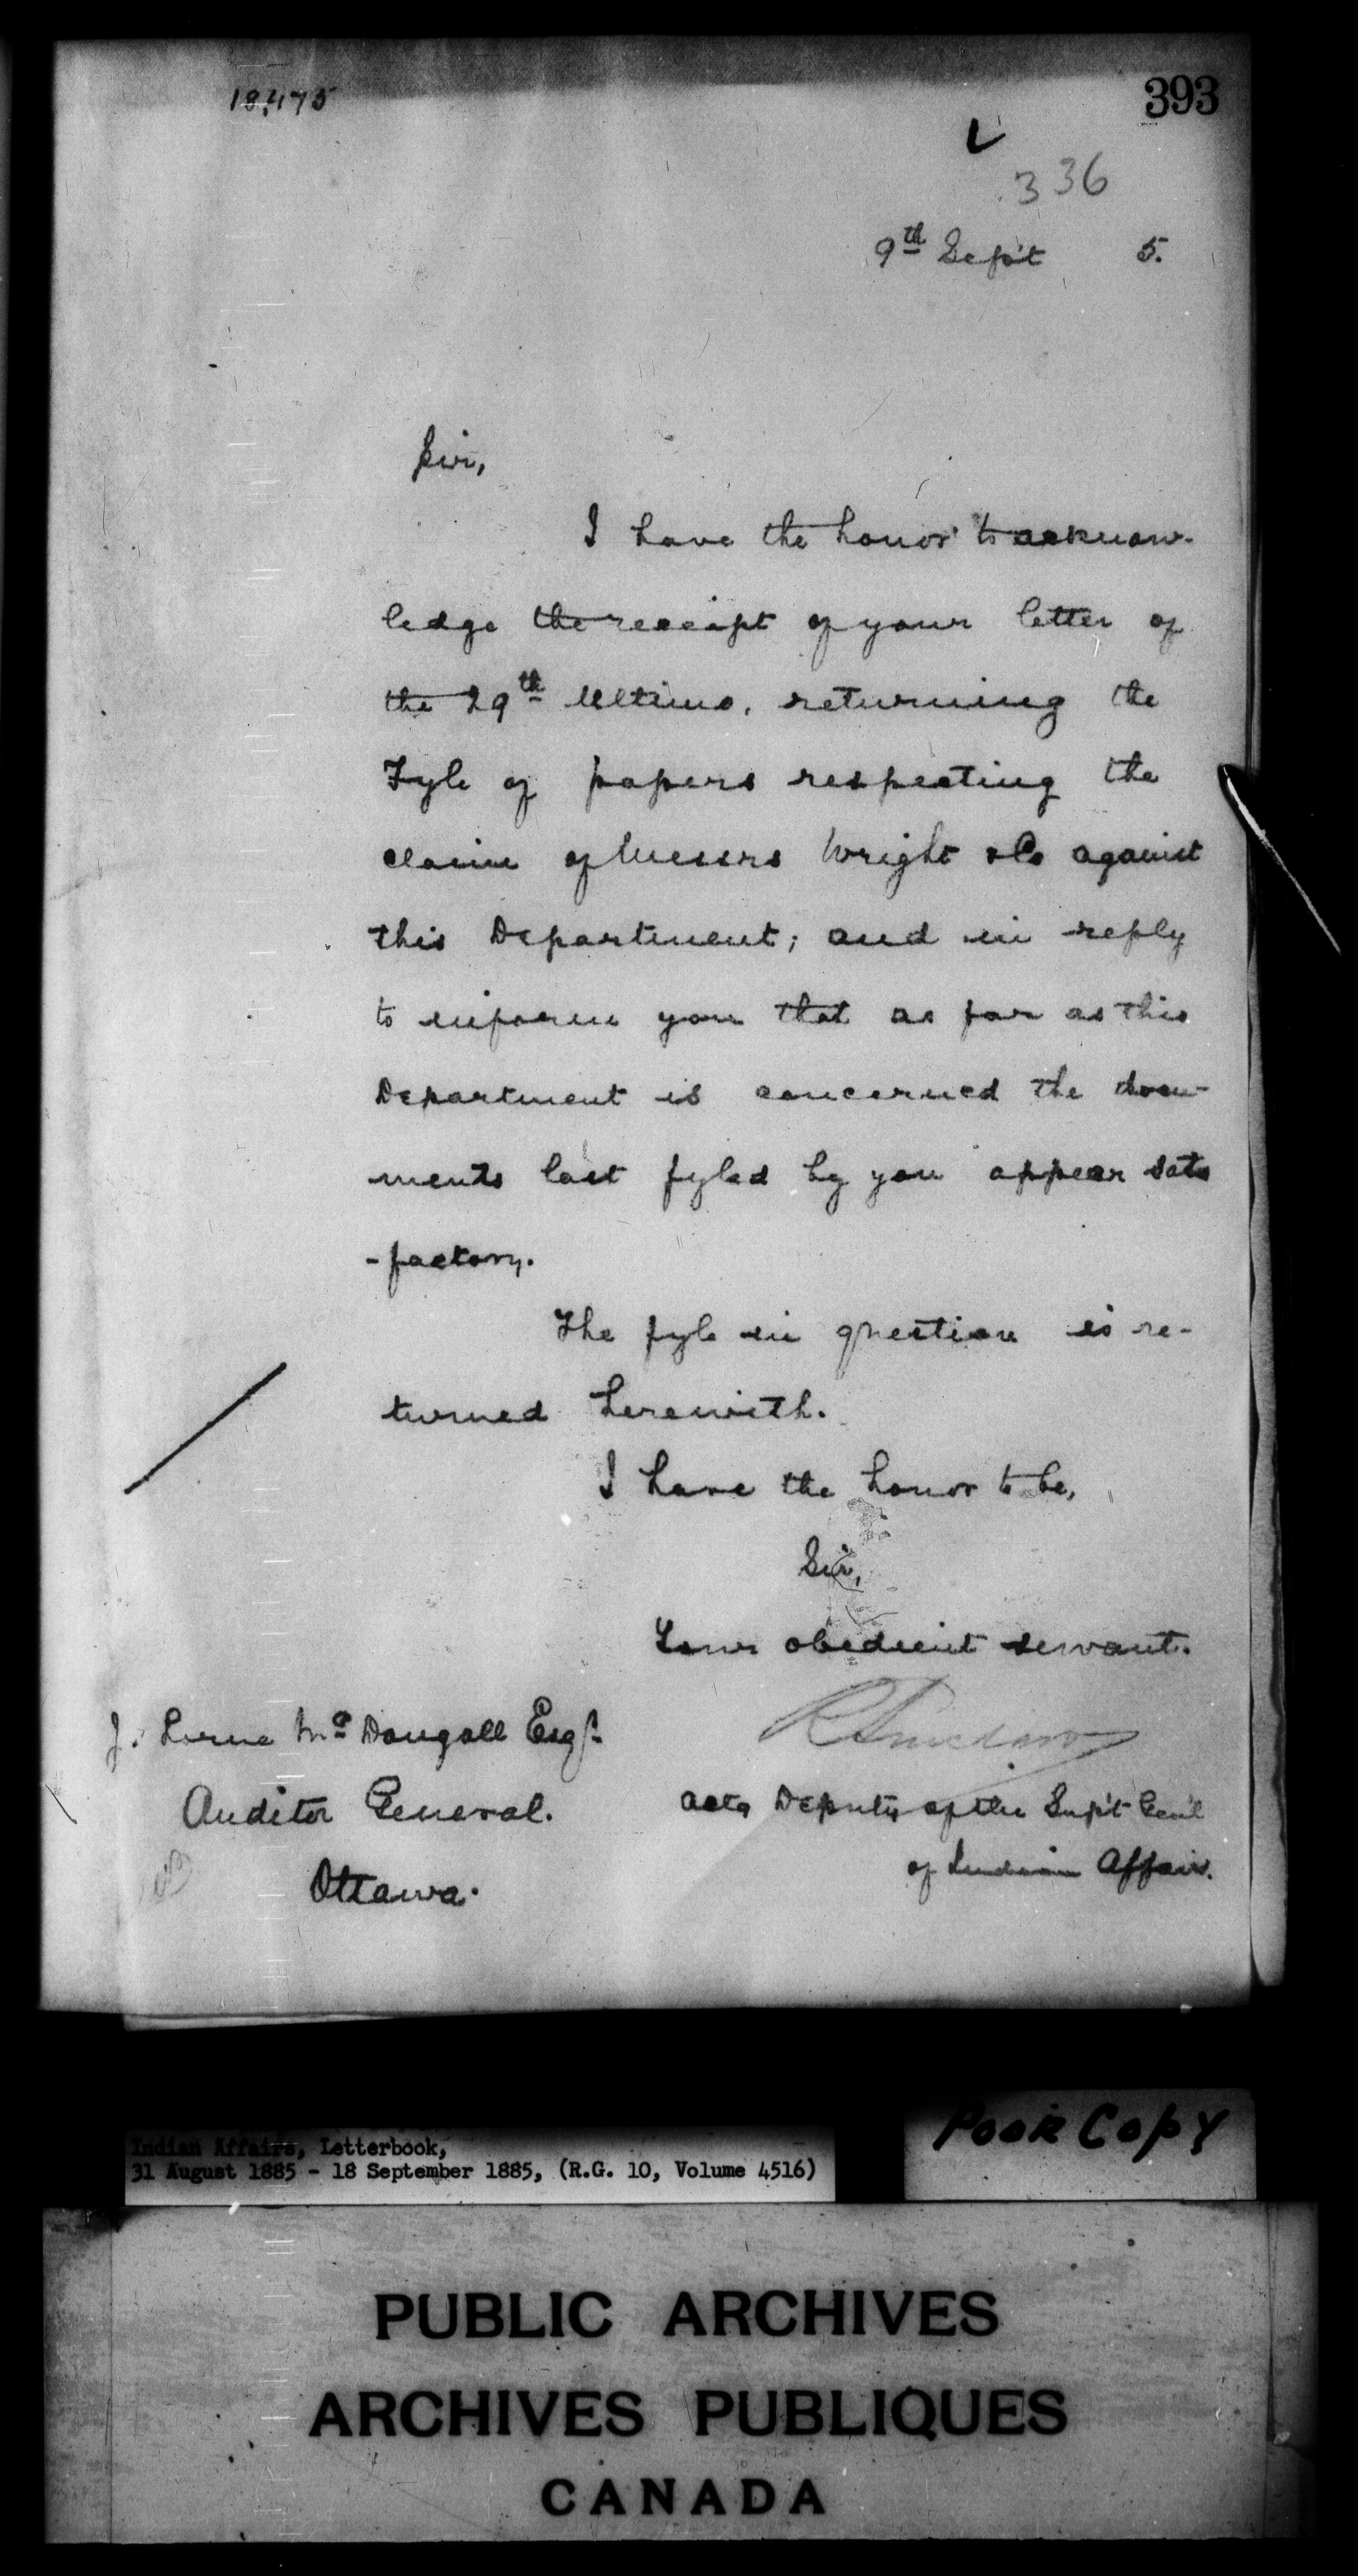 18,475
393
336
9th Sep't 5.
Sir,
I have the honor to acknow-
ledge the receipt of your letter of
the 29th Ultimo, returning the
Fyle of papers respecting the
claim of Messrs Wright & Co against
this Department; and in reply
to inform you that as far as this
Department is concerned the docu-
ments last fyled by you appear satis
-factory.
The fyle in question is re-
turned herewith.
I have the honor to be,
Sir,
Your obedient servant.
J. Lorne McDougall Esqr.
Auditor General.
Ottawa.
Actg Deputy of the Sup't Gen'l
of Indian Affairs.
Poor Copy
Indian Affairs, Letterbook,
31 August 1885 - 18 September 1885, (R.G. 10, Volume 4516)
PUBLIC ARCHIVES
ARCHIVES PUBLIQUES
CANADA